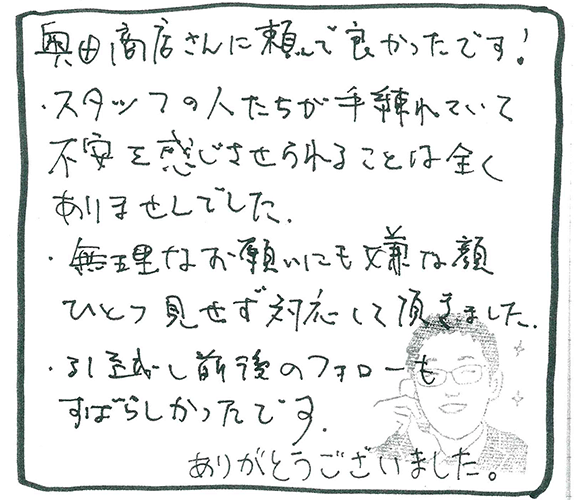 奥田商店さんに頼んで良かったです!
・スタッフの人たちが手練れていて
不安を感じさせられることは全く
ありませんでした.
・無理なお願いにも嫌な顔
ひとつ見せず対応して頂きました.
・引越し前後のフォローも
すばらしかったです.
ありがとうございました。